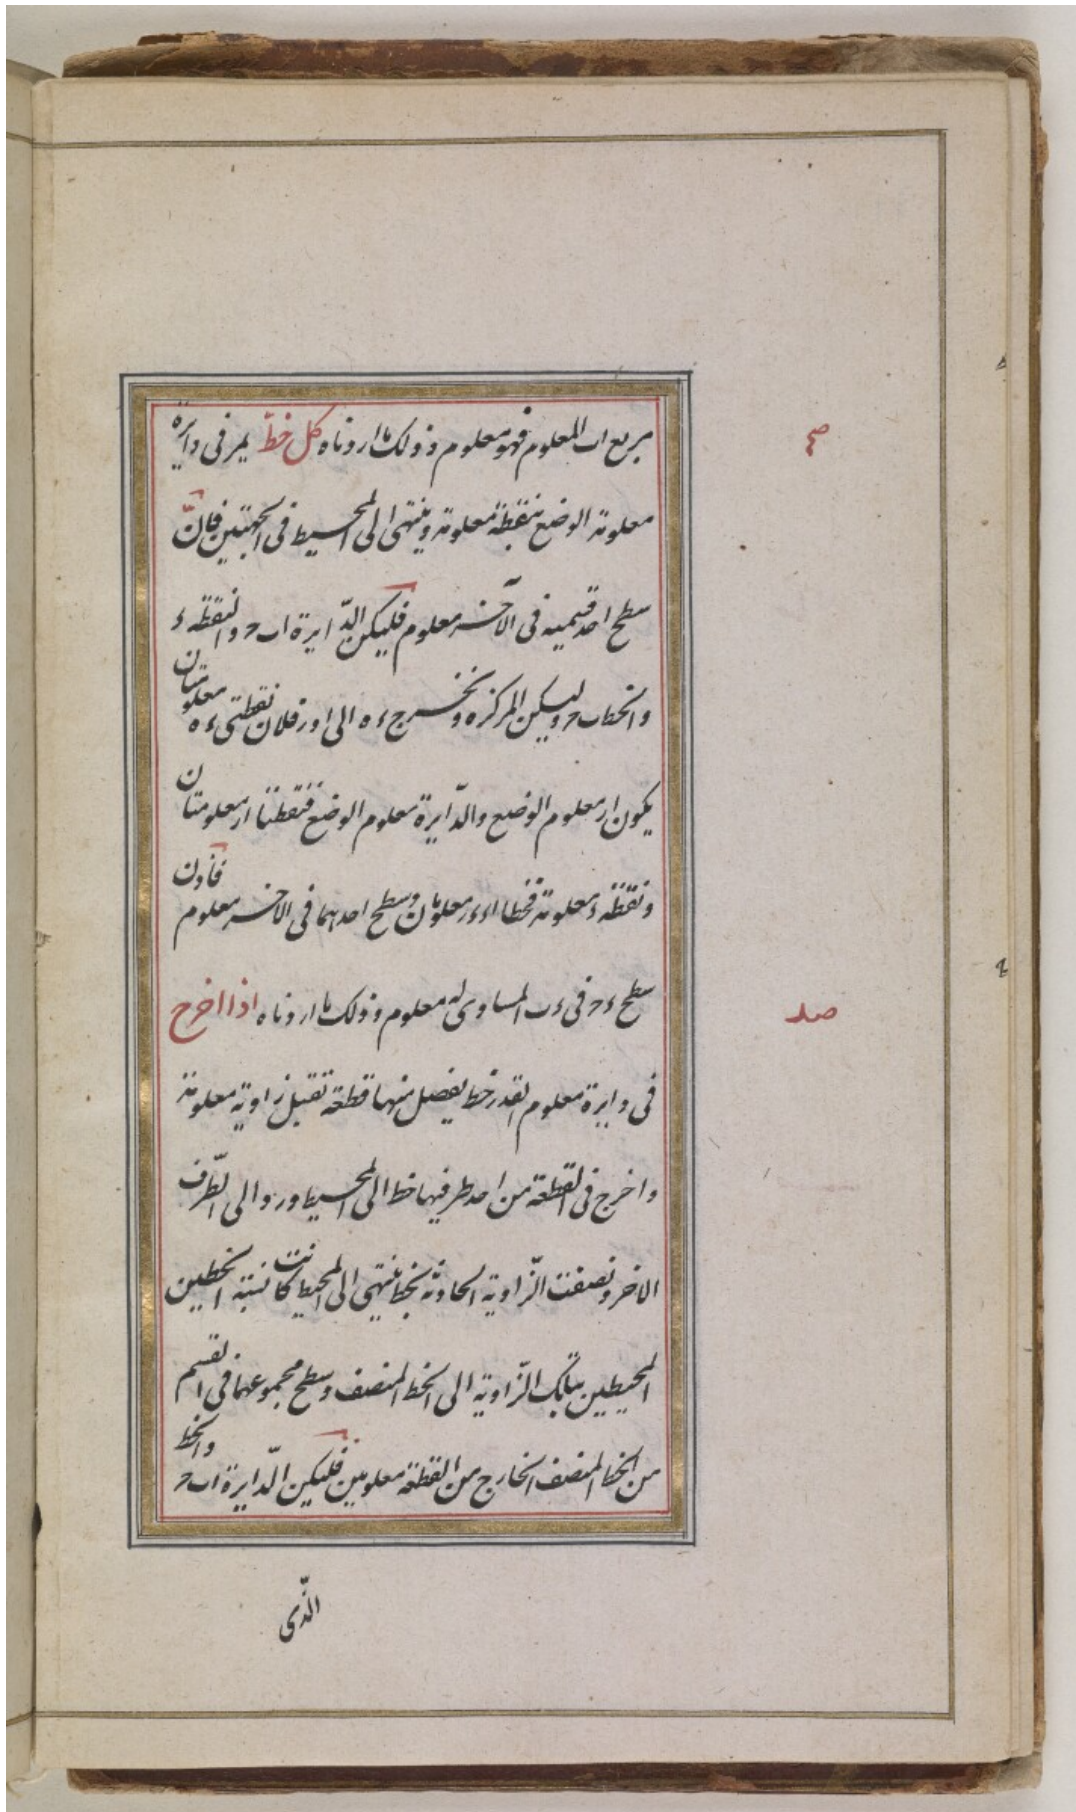 مربع اب المعلوم فهو معلوم وذلك ما اردناه كل خط يمر فى دايرة
صح
معلومة الوضع بنقطة معلومة وينتهى الى المحيط فى الجهتين فان
سطح احد قسميه فى الآخر معلوم فليكن الدّايرة اب ح والنقطة ء
والخط ب ح وليكن المركز ه ونخرج ء ه الى ا ر فلان نقطتى ء ه معلومتان
يكون ا ر معلوم الوضع والدّايرة معلوم الوضع فنقطتا ا ر معلومتان
ونقطة ء معلومة فخطا ا ء ء ر معلومان وسطح احدهما فى الاخر معلوم فاذن
سطح ء ح فى ء ب المساوى له معلوم وذلك ما اردناه اذا اخرج
صد
فى دايرة معلوم القدر خط يفصل منها قطعة تقبل زاوية معلومة
واخرج فى القطعة من احد طرفيها خط الى المحيط ورد الى الطّرف
الاخر ونصفت الزّاوية الحادثة بخط ينتهى الى المحيط كانت نسبة الخطين
المحيطين بتلك الزّاوية الى الخط المنصف وسطح مجموعهما فى القسم
من الخط المنصف الخارج من القطعة معلومين فليكن الدّايرة اب ح والخط
الذّى